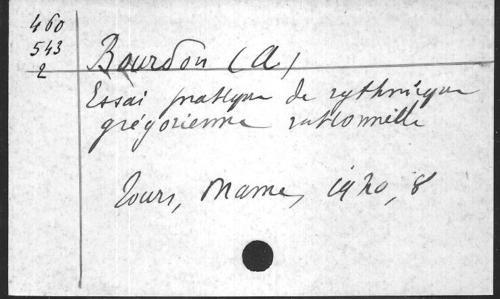 460
543
2
Bourdon (A)
Essai pratique de rythmique
grégorienne rationnelle
Tours, Mame, 1920, 8